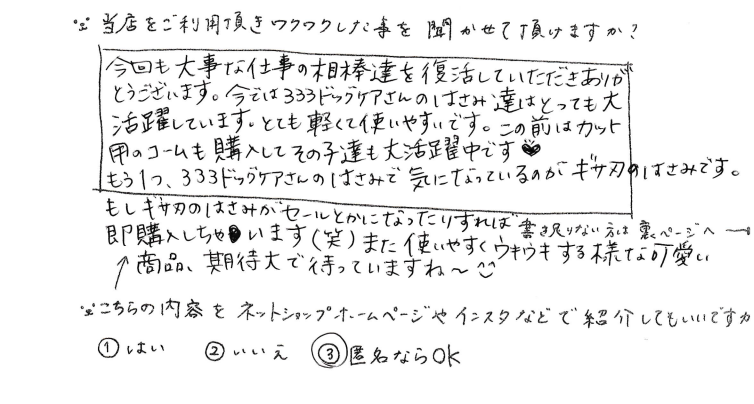 ※ 当店をご利用頂きワクワクした事を聞かせて頂けますか?
今回も大事な仕事の相棒達を復活していただきありが
とうございます。今では333ドッグケアさんのはさみ達はとっても大
活躍しています。とても軽くて使いやすいです。この前はカット
用のコームも購入してその子達も大活躍中です♥
もう1つ、333ドッグケアさんのはさみで気になっているのがギザ刃のはさみです。
もしギザ刃のはさみがセールとかになったりすれば
書き足りない方は裏ページへ→
即購入しちゃいます(笑)また使いやすくウキウキする様な可愛い
↑商品、期待大で待っていますね〜☺
※こちらの内容をネットショップホームページやインスタなどで紹介してもいいですか
① はい ② いいえ ③ 匿名ならOK